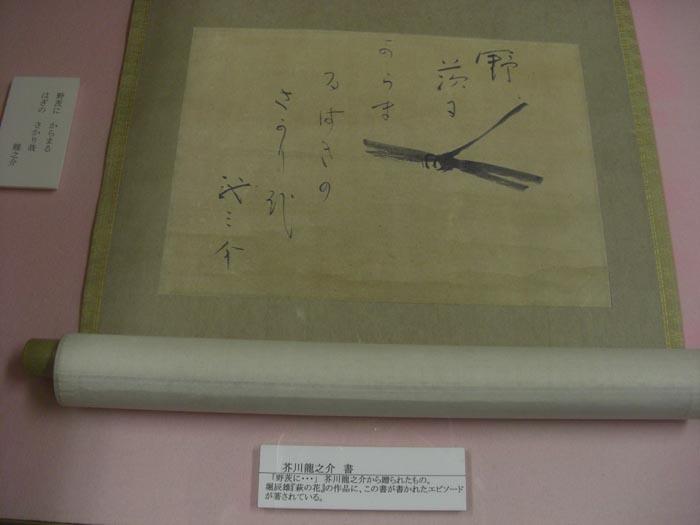 野
茨に
からま
るはぎの
さかり哉
龍之介
野茨に からまる
はぎの さかり哉
龍之介
芥川龍之介 書
「野茨に・・・」 芥川龍之介から贈られたもの。
堀辰雄『萩の花』の作品に、この書が書かれたエピソード
が著されている。